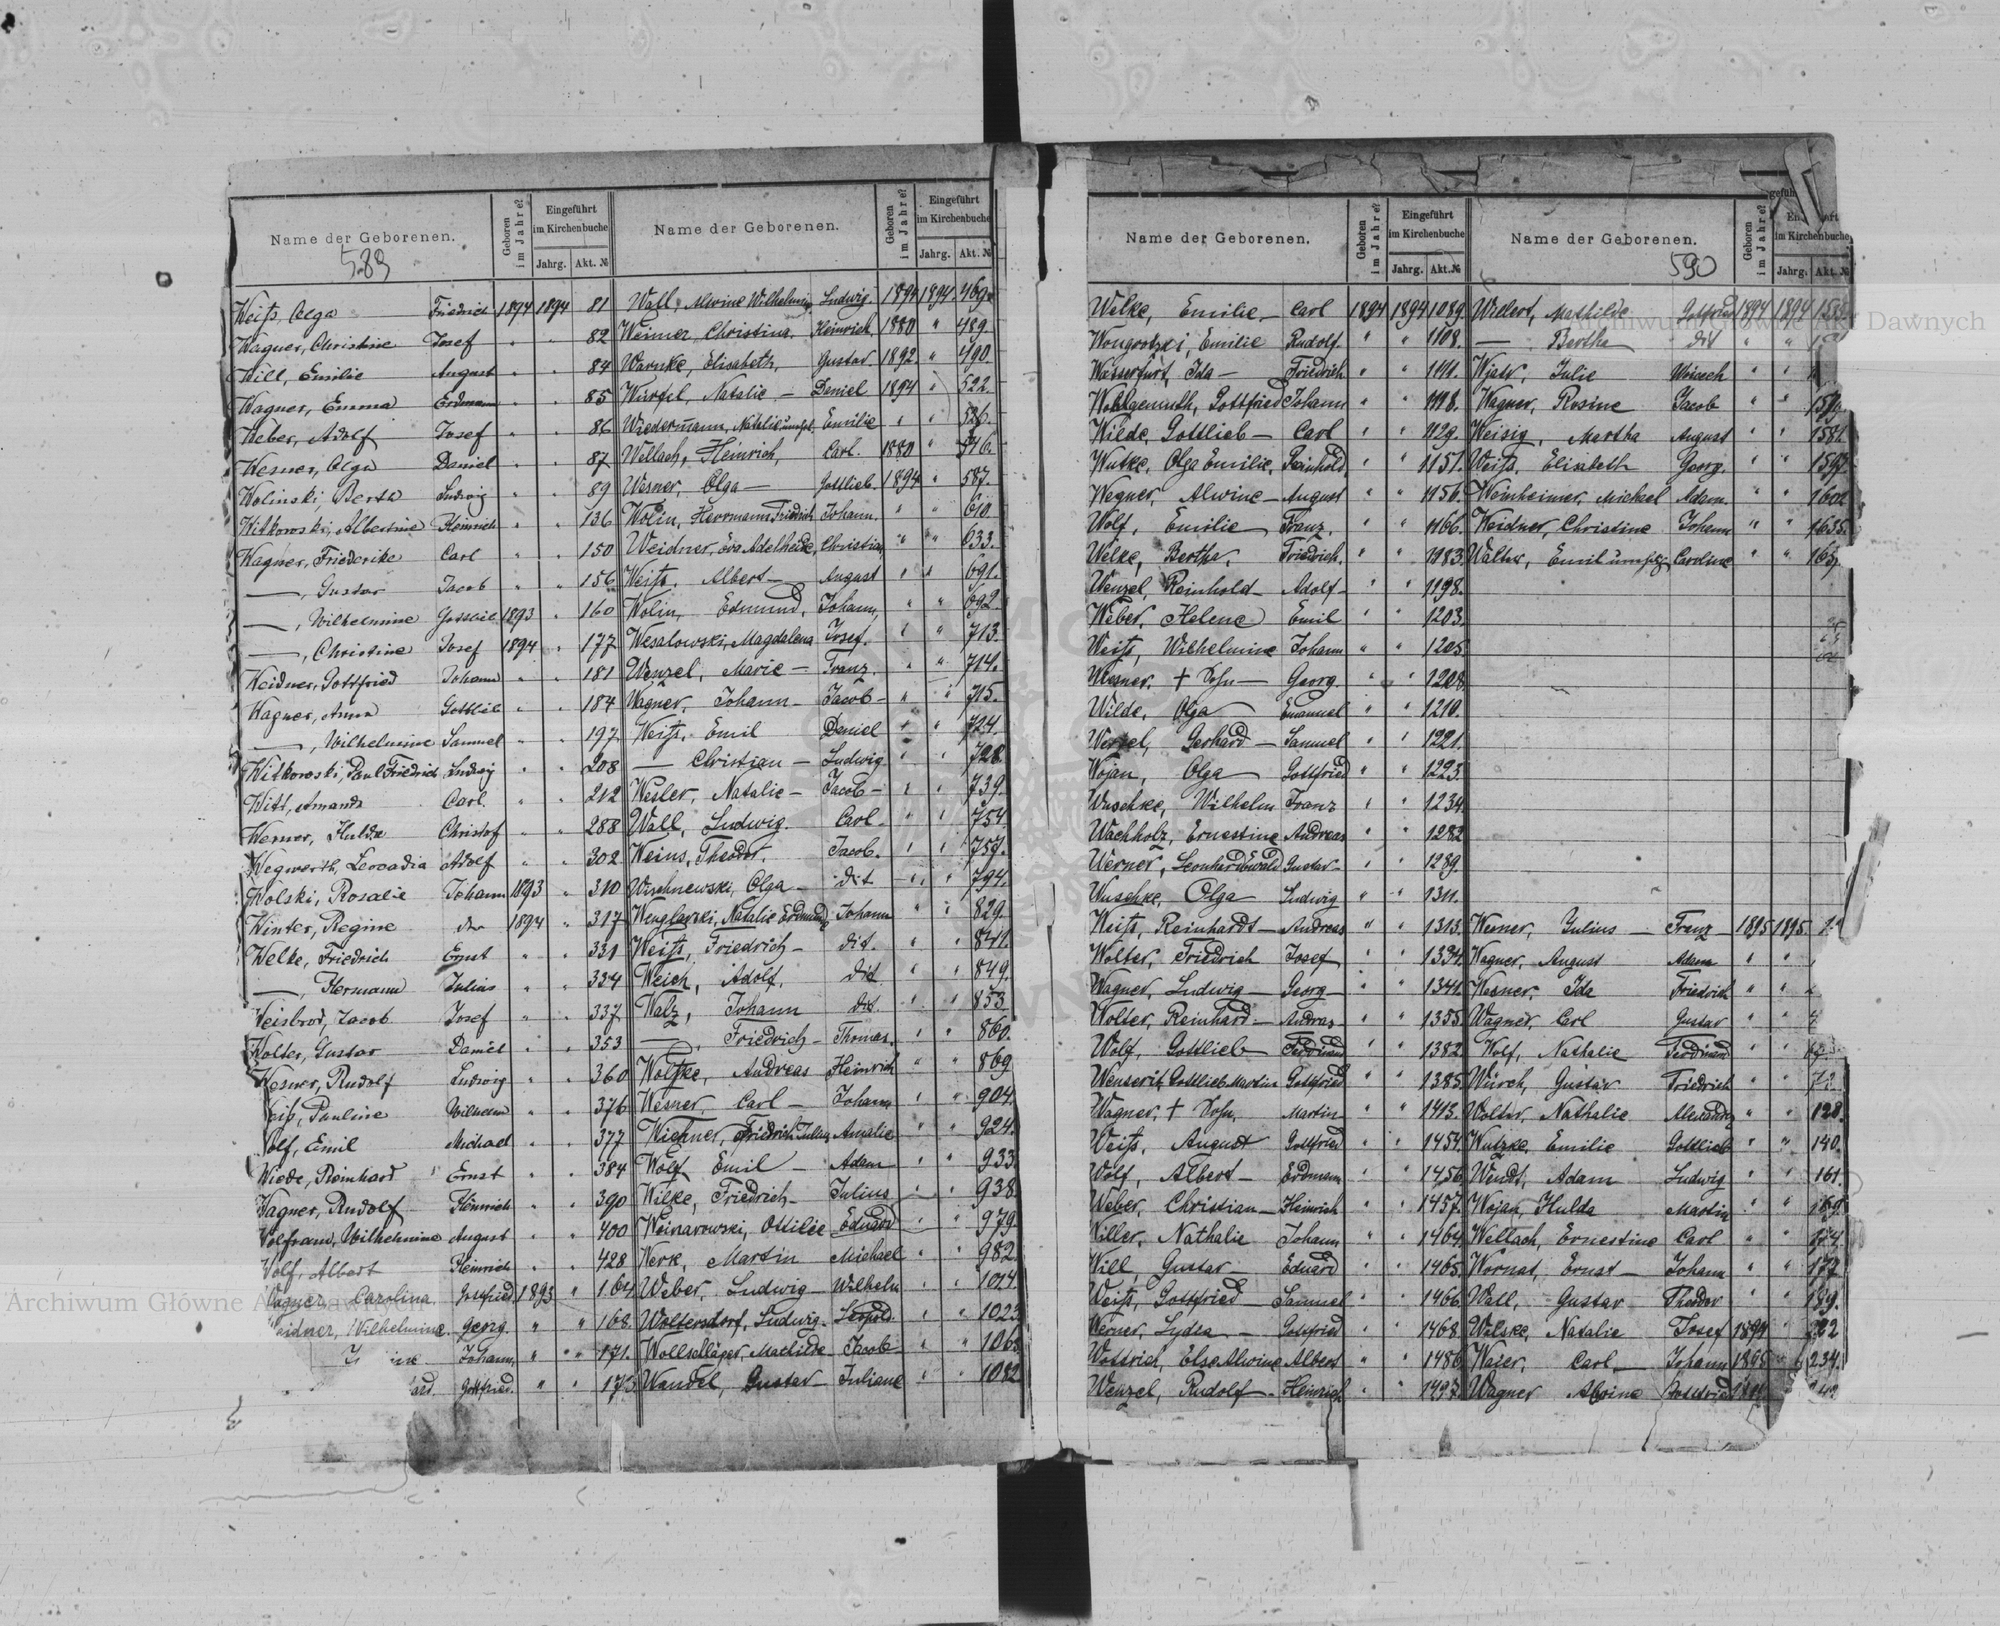 Name der Geborenen.
Geboren im Jahre?
Eingeführt im Kirchenbuche
Jahrg. Akt. №
Name der Geborenen.
Geboren im Jahre?
Eingeführt im Kirchenbuche
Jahrg. Akt. №
589
Weiß, Olga Friedrich 1894 1894 81
Wagner, Christine Josef " " 82
Will, Emilie August " " 84
Wagner, Emma Erdmann " " 85
Weber, Adolf Josef " " 86
Wesner, Olga Daniel " " 87
Wolinski, Berta Ludwig " " 89
Witkowski, Albertine Heinrich " " 136
Wagner, Friederike Carl " " 150
—, Gustav Jacob " " 156
—, Wilhelmine Gottlieb 1893 " 160
—, Christine Josef 1894 " 177
Weidner, Gottfried Johann " " 181
Wagner, Anna Gottlieb " " 184
—, Wilhelmine Samuel " " 197
Witkowski, Paul Friedrich Ludwig " " 208
Witt, Amanda Carl " " 212
Werner, Hulda Christof " " 288
Wegwerth, Leocadia Adolf " " 302
Wolski, Rosalie Johann 1893 " 310
Winter, Regine 1894 " 317
Welke, Friedrich Ernst " " 331
—, Hermann Julius " " 334
Weisbrod, Jacob Josef " " 337
Wolter, Gustav Daniel " " 353
Wesner, Rudolf Ludwig " " 360
Pauline Wilhelm " " 376
Wolf, Emil Michael " " 377
Wiede, Reinhard Ernst " " 384
Wagner, Rudolf Heinrich " " 390
Wolfram, Wilhelmine August " " 400
Wolf, Albert Heinrich " " 428
Wagner, Carolina Gottfried 1893 " 164
Wilhelmine Georg " " 168
Johann " " 171
Gottfried " " 175
Wall, Alwine Wilhelmine Ludwig 1894 1894 469
Weimer, Christina Heinrich 1880 " 489
Warnke, Elisabeth, Gustav 1892 " 490
Würfel, Natalie — Daniel 1894 " 522
Wiedermann, Natalie Emilie " " 536
Wellach, Heinrich, Carl 1880 " 546
Wesner, Olga — Gottlieb 1894 " 587
Wolin, Herrmann Friedrich Johann " " 610
Weidner, Eva Adelheide, Christian " " 633
Weiß, Albert — August " " 691
Wolin, Edmund, Johann " " 692
Wesalowski, Magdalena Josef " " 713
Wenzel, Marie — Franz " " 714
Wagner, Johann — Jacob — " " 715
Weiß, Emil Daniel " " 724
— Christian — Ludwig " " 728
Wesler, Natalie — Jacob — " " 739
Wall, Ludwig Carl " " 754
Weins, Theodor Jacob " " 757
Wischnewski, Olga — dit " " 794
Wenglarski, Natalie Erdmund Johann " " 829
Weiß, Friedrich — dit. " " 841
Weich, Adolf, dit " " 849
Walz, Johann dit " " 853
—, Friedrich — Thomas " " 860
Wolfke, Andreas Heinrich " " 869
Wesner, Carl — Johann " " 904
Wichner, Friedrich Julius Amalie " " 924
Wolf, Emil — Adam " " 933
Wilke, Friedrich — Julius " " 938
Weinarowski, Ottilie Eduard " " 979
Werk, Martin Michael " " 982
Weber, Ludwig — Wilhelm " " 1014
Woltersdorf, Ludwig — Leopold " " 1023
Wollschläger, Mathilde — Jacob " " 1065
Wandel, Gustav — Juliane " " 1082
Name der Geborenen.
Geboren im Jahre?
Eingeführt im Kirchenbuche
Jahrg. Akt. №
Name der Geborenen.
Geboren im Jahre?
im Kirchenbuche
Jahrg. Akt. №
590
Welke, Emilie — Carl 1894 1894 1089
Wongrotzki, Emilie Rudolf " " 1108
Wasserfurt, Ida — Friedrich " " 1111
Wohlgemuth, Gottfried Johann " " 1118
Wilde, Gottlieb — Carl " " 1129
Wutke, Olga Emilie, Reinhold " " 1151
Wegner, Alwine — August " " 1156
Wolf, Emilie Franz " " 1166
Welke, Bertha, Friedrich " " 1183
Wenzel, Reinhold — Adolf — " " 1198
Weber, Helene Emil " " 1203
Weiß, Wilhelmine Johann " " 1205
Wiesner, † Sohn — Georg " " 1208
Wilde, Olga Emanuel " " 1210
Wenzel, Gerhard — Samuel " " 1221
Wojan, Olga Gottfried " " 1223
Wuschke, Wilhelm Franz " " 1234
Wachholz, Ernestine Andreas " " 1282
Werner, Leonhard Ewald Gustav — " " 1289
Wuschke, Olga Ludwig " " 1311
Weiß, Reinhardt — Andreas " " 1313
Wolter, Friedrich Josef " " 1334
Wagner, Ludwig — Georg — " " 1341
Wolter, Reinhard — Andreas " " 1355
Wolf, Gottlieb — Ferdinand " " 1382
Gottlieb Martin Gottfried " " 1385
Wagner, † Sohn, Martin " " 1413
Weiß, August Gottfried " " 1454
Wolf, Albert — Erdmann " " 1456
Weber, Christian — Heinrich " " 1457
Willer, Nathalie Johann " " 1464
Will, Gustav — Eduard " " 1465
Weiß, Gottfried — Samuel " " 1466
Werner, Lydia — Gottfried " " 1468
Wottrich, Else Alwine Albert " " 1486
Wenzel, Rudolf — Heinrich " " 1497
Willert, Mathilde Gottfried 1894 1894
— Bertha dit " "
Julie " "
Wagner, Rosine Jacob " " 1579
Weisig, Martha August " " 1581
Weiß, Elisabeth Georg " " 1597
Weinheimer, Michael Adam " " 1602
Weidner, Christine Johann " " 1635
Walter, Emil Caroline " "
Wesner, Julius — Franz 1895 1895
Wagner, August Adam " "
Wesner, Ida Friedrich " "
Wagner, Carl Gustav " "
Wolf, Nathalie Ferdinand " "
Würch, Gustav Friedrich " "
Wolter, Nathalie " " 128
Wutzke, Emilie Gottlieb " " 140
Wendt, Adam Ludwig " " 161
Wojan, Hulda Martin " " 169
Wellach, Ernestine Carl " " 174
Wornat, Ernst — Johann " " 177
Wall, Gustav Theodor " " 189
Walske, Natalie Josef 1894 " 222
Waier, Carl — Johann 1895 " 234
Wagner Alvine Gottfried
Archiwum Główne Akt Dawnych
Archiwum Główne Akt Dawnych